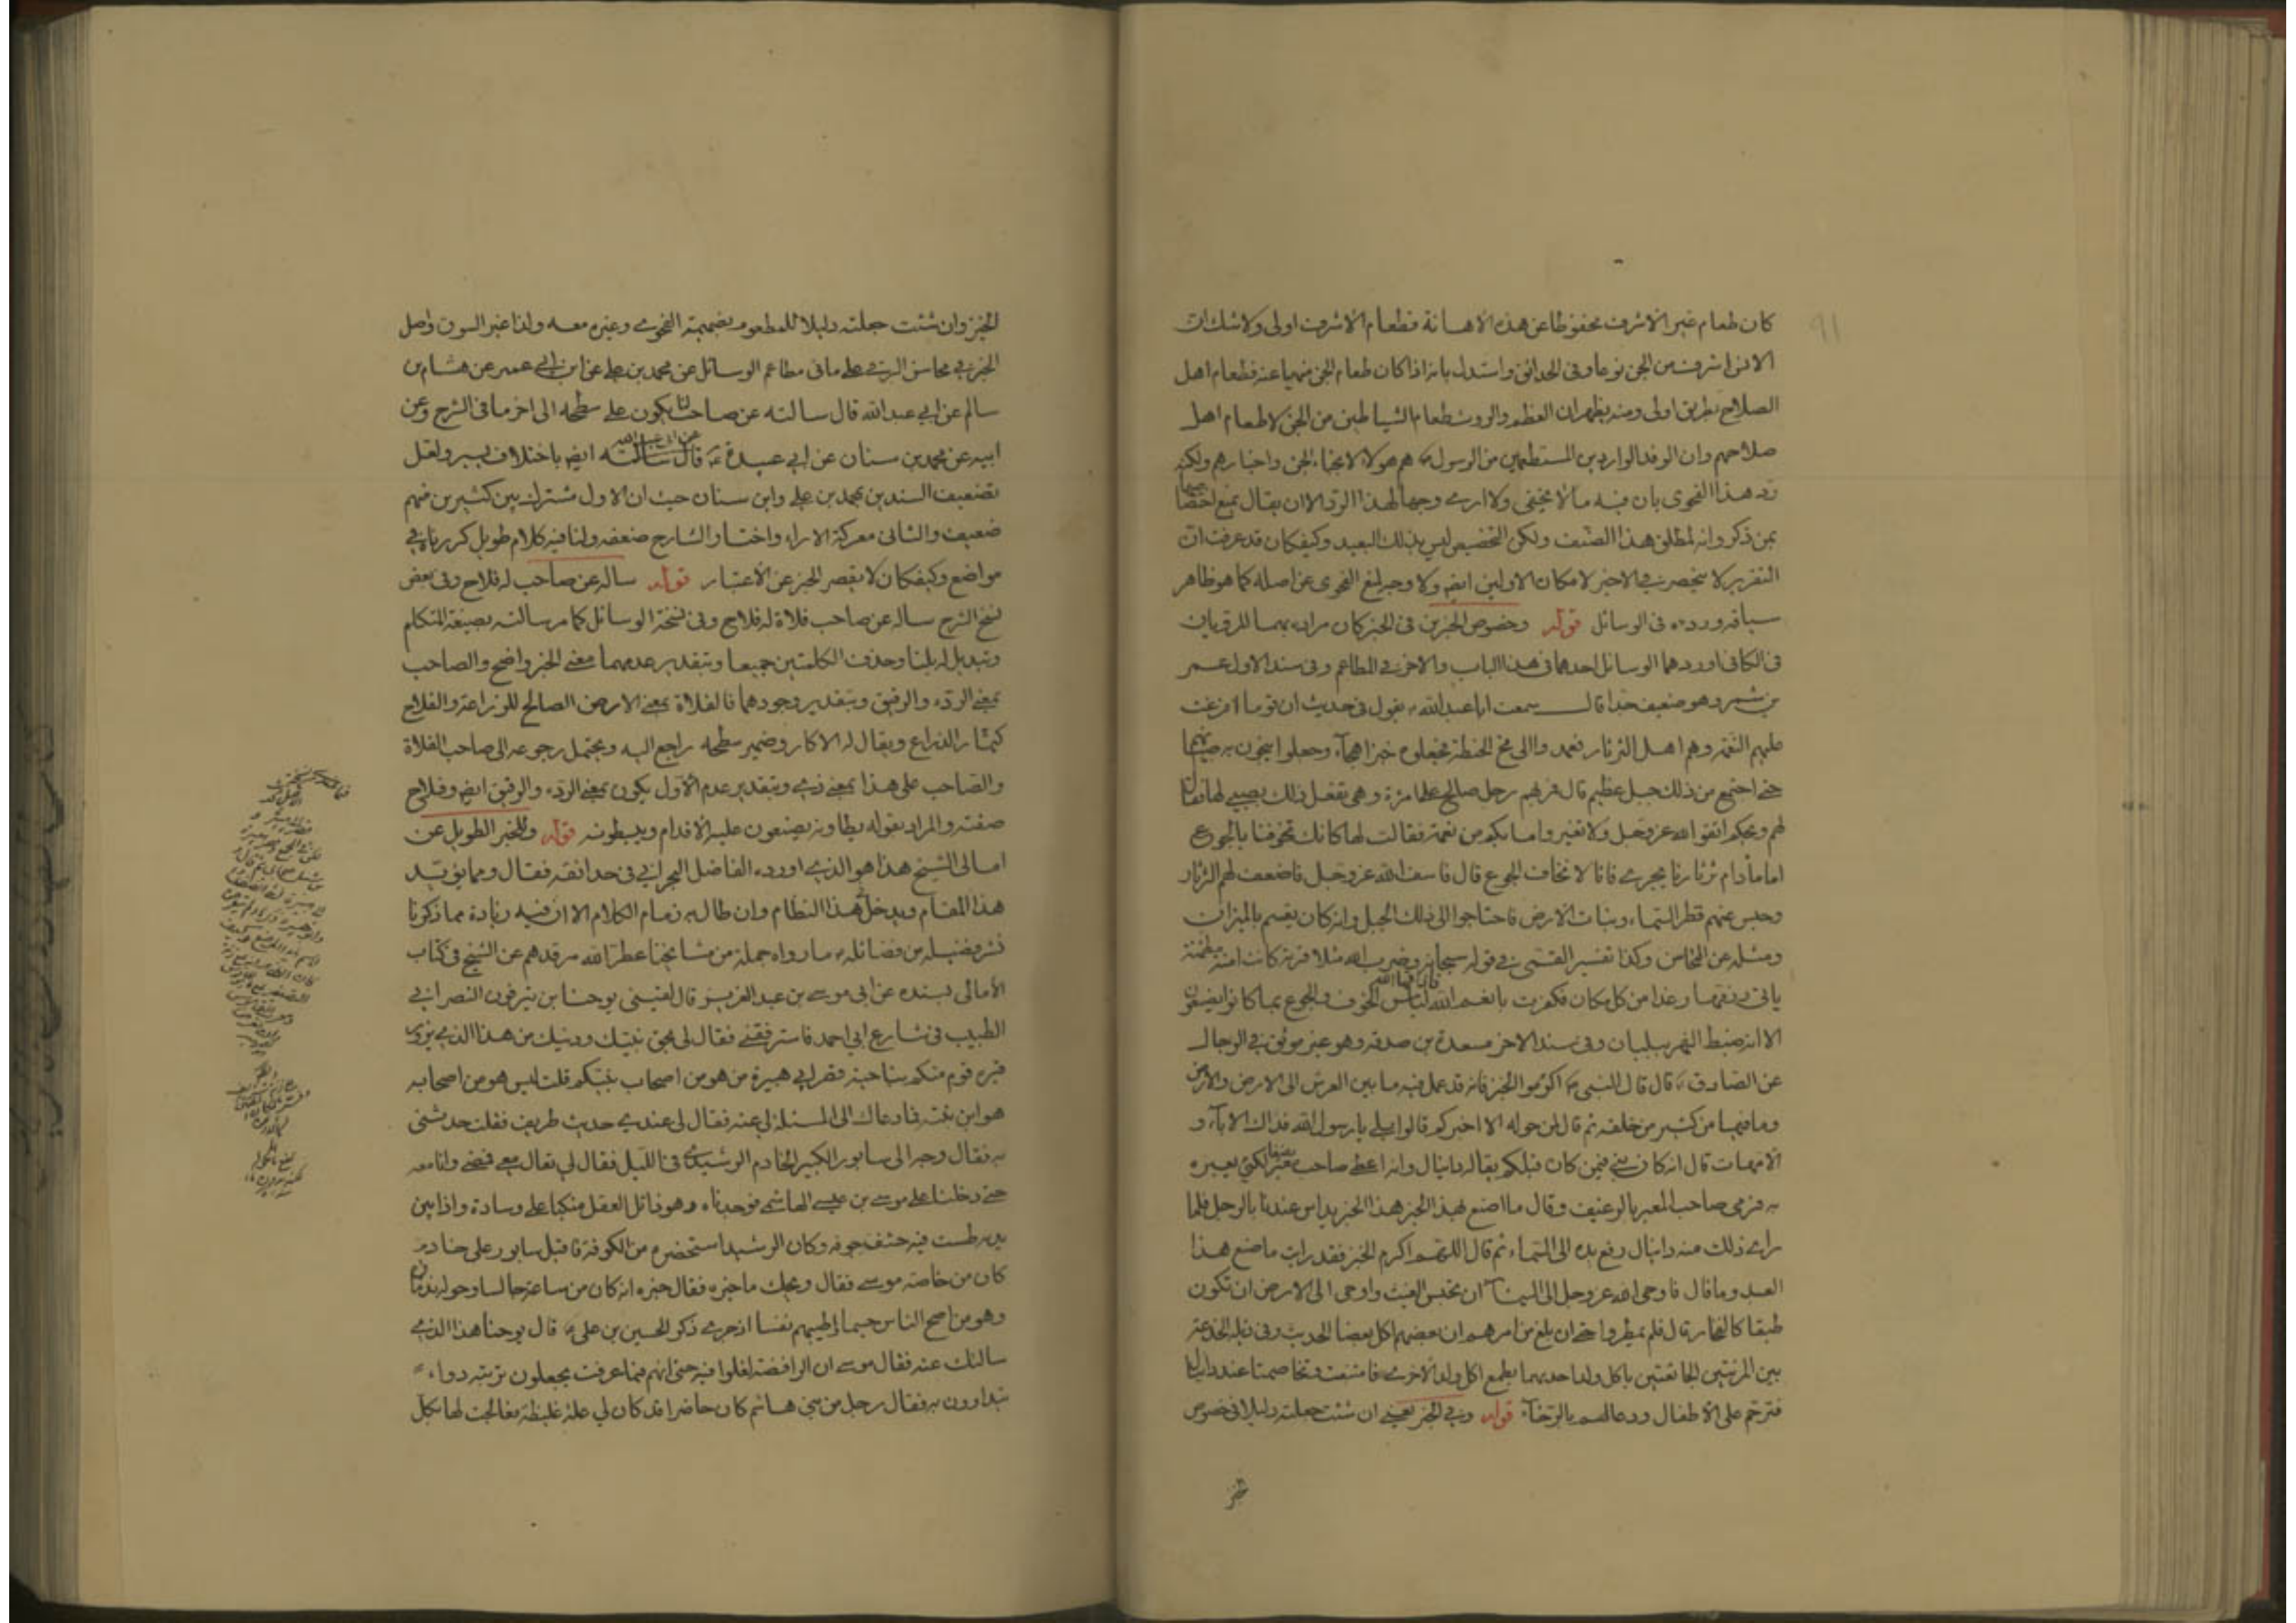 كان طعام غير الاشرف محفوظا عن هذه الاهانة فطعام الاشرف اولى ولا شك ان
الانس اشرف من الجن نوعا وفى الحدائق واستدل بانه اذا كان طعام الجن منهيا عنه فطعام اهل
الصلاح بطريق اولى ومنه يظهر ان العظم والروث طعام الشياطين من الجن لا طعام اهل
صلاحهم وان الوفد الواردين المستطعمين من الرسول هم هؤلاء لا نجباء الجن واخيارهم ولكنه
رد هذا الفحوى بان فيه ما لا يخفى ولا ارى وجها لهذا الرد الا ان يقال بمنع اختصا
بمن ذكر وانه لمطلق هذا الصنف ولكن التخصيص ليس بذلك البعيد وكيفكان قد عرفت ان
التقرير لا ينحصر فى الاخير لامكان الاولين ايض ولا وجه لمنع الفحوى عن اصله كما هو ظاهر
سياقه ورده فى الوسائل قوله وخصوص الخبرين فى الخبز كان مراده بهما المرويان
فى الكافى اوردهما الوسائل احدهما فى هذا الباب والاخر فى المطاعم وفى سند الاول عمر
بن شمر وهو ضعيف جدا قال سمعت ابا عبد الله يقول فى حديث ان قوما افرغت
عليهم النعمة وهم اهل الثرثار فعمدوا الى مخ الحنطة فجعلوه خبزا هجاء وجعلوا ينجون به صبيانهم
حتى اجتمع من ذلك جبل عظيم قال فمر بهم رجل صالح على امرأة وهى تفعل ذلك بصبى لها فقال
لهم ويحكم اتقوا الله عز وجل ولا تغيروا ما بكم من نعمة فقالت له كانك تخوفنا بالجوع
اما ما دام ثرثارنا يجرى فانا لا نخاف الجوع قال فاسف الله عز وجل فاضعف لهم الثرثار
وحبس عنهم قطر السماء ونبات الارض فاحتاجوا الى ذلك الجبل وانه كان يقسم بالميزان
ومثله عن المحاسن وكذا تفسير القمى فى قوله سبحانه وضرب الله مثلا قرية كانت امنة مطمئنة
ياتى رزقها رغدا من كل مكان فكفرت بانعم الله فاذاقها الله لباس الخوف والجوع بما كانوا يصنعون
الا انه ضبط النهر ببليان وفى سند الاخر مسعدة بن صدقة وهو غير موثق فى الرجال
عن الصادق قال قال النبى اكرموا الخبز فانه قد عمل فيه ما بين العرش الى الارض والارض
وما فيها من كثير من خلقه ثم قال لمن حوله الا اخبركم قالوا بلى يا رسول الله فداك الاباء و
الامهات قال انه كان نبى فيمن كان قبلكم يقال له دانيال وانه اعطى صاحب معبر رغيفا لكى يعبره
به فرمى صاحب المعبر بالرغيف وقال ما اصنع بهذا الخبز هذا الخبز يداس عندنا بالرجل فلما
راى ذلك منه دانيال رفع يده الى السماء ثم قال اللهم اكرم الخبز فقد رايت ما صنع هذا
العبد وما قال فاوحى الله عز وجل الى السماء ان تحبس الغيث واوحى الى الارض ان تكون
طبقا كالفخار قال فلم يمطروا حتى ان بلغ من امرهم ان بعضهم اكل بعضا الحديث وفى ذيله
بين المرئتين الجائعتين باكل ولد احدهما بطمع اكل ولد الاخرى فامتنعت وتخاصمتا عند دانيال
فترحم على الاطفال ودعا لهم بالرخاء قوله وفى الخبز يعنى ان شئت جعلته دليلا فى خصوص
الخبز وان شئت جعلته دليلا للمطعوم بضميمة الفحوى وغيره معه ولذا غير السوق واصل
الخبر فى محاسن البرقى على ما فى مطاعم الوسائل عن محمد بن على عن ابن ابى عمير عن هشام بن
سالم عن ابى عبد الله قال سالته عن صاحب لنا يكون على سطحه الى اخر ما فى الشرح وعن
ابيه عن محمد بن سنان عن ابى عيينة عن ابى عبد الله قال سالته ايض باختلاف يسير ولعل
تضعيف السند بن محمد بن على وابن سنان حيث ان الاول مشترك بين كثيرين منهم
ضعيف والثانى معركة الاراء واختار الشارح ضعفه ولنا فيه كلام طويل كررناه فى
مواضع وكيفكان لا يقصر الخبر عن الاعتبار قوله ساله عن صاحب له فلاح وفى بعض
نسخ الشرح ساله عن صاحب فلاة له فلاح وفى نسخة الوسائل كما مر سالته بصيغة المتكلم
وتبديل له بلنا وحذف الكلمتين جميعا وبتقدير عدمهما معنى الخبر واضح والصاحب
بمعنى الردء والرفيق وبتقدير وجودهما فالفلاة بمعنى الارض الصالح للزراعة والفلاح
ككتان الزراع ويقال له الاكار وضمير سطحه راجع اليه ويحتمل رجوعه الى صاحب الفلاة
والصاحب على هذا بمعنى ذى وبتقدير عدم الاول يكون بمعنى الردء والرفيق ايض وفلاح
صفته والمراد بقوله يطاونه يضعون عليه الاقدام ويبسطونه قوله وللخبر الطويل عن
امالى الشيخ هذا هو الذى اورده الفاضل البحرانى فى حدائقه فقال ومما يؤيد
هذا المقام ويدخل فى هذا النظام وان طال به زمام الكلام الا ان فيه زيادة مما ذكرنا
نشر فضيلة من فضائله ما رواه جملة من مشايخنا عطر الله مرقدهم عن الشيخ فى كتاب
الامالى بسنده عن ابى موسى بن عبد العزيز قال لقينى يوحنا بن سرافيون النصرانى
الطبيب فى شارع ابى احمد فاستوقفنى فقال لى بحق نبيك ودينك من هذا الذى يزور
قبره قوم منكم بناحية قصر ابى هبيرة من هو من اصحاب نبيكم قلت ليس هو من اصحابه
هو ابن بنته فما دعاك الى المسئلة لى عنه فقال لى عندى حديث طريف فقلت حدثنى
به فقال وجه الى سابور الكبير الخادم الرشيدى فى الليل فقال لى تعال معى فمضى وانا معه
حتى دخلنا على موسى بن عيسى الهاشمى فوجدناه وهو زائل العقل متكئا على وسادة واذا بين
يديه طست فيه حشف جوفه وكان الرشيد استحضره من الكوفة فاقبل سابور على خادم
كان من خاصة موسى فقال ويحك ما خبره فقال خبره انه كان من ساعته جالسا وحوله ندمائه
وهو من اصح الناس جسما واطيبهم نفسا اذ جرى ذكر الحسين بن على قال يوحنا هذا الذى
سالتك عنه فقال موسى ان الرافضة لغلوا فيه حتى انهم فيما عرفت يجعلون تربته دواء
يتداوون به فقال رجل من بنى هاشم كان حاضرا قد كان لى علة غليظة فعالجت لها بكل